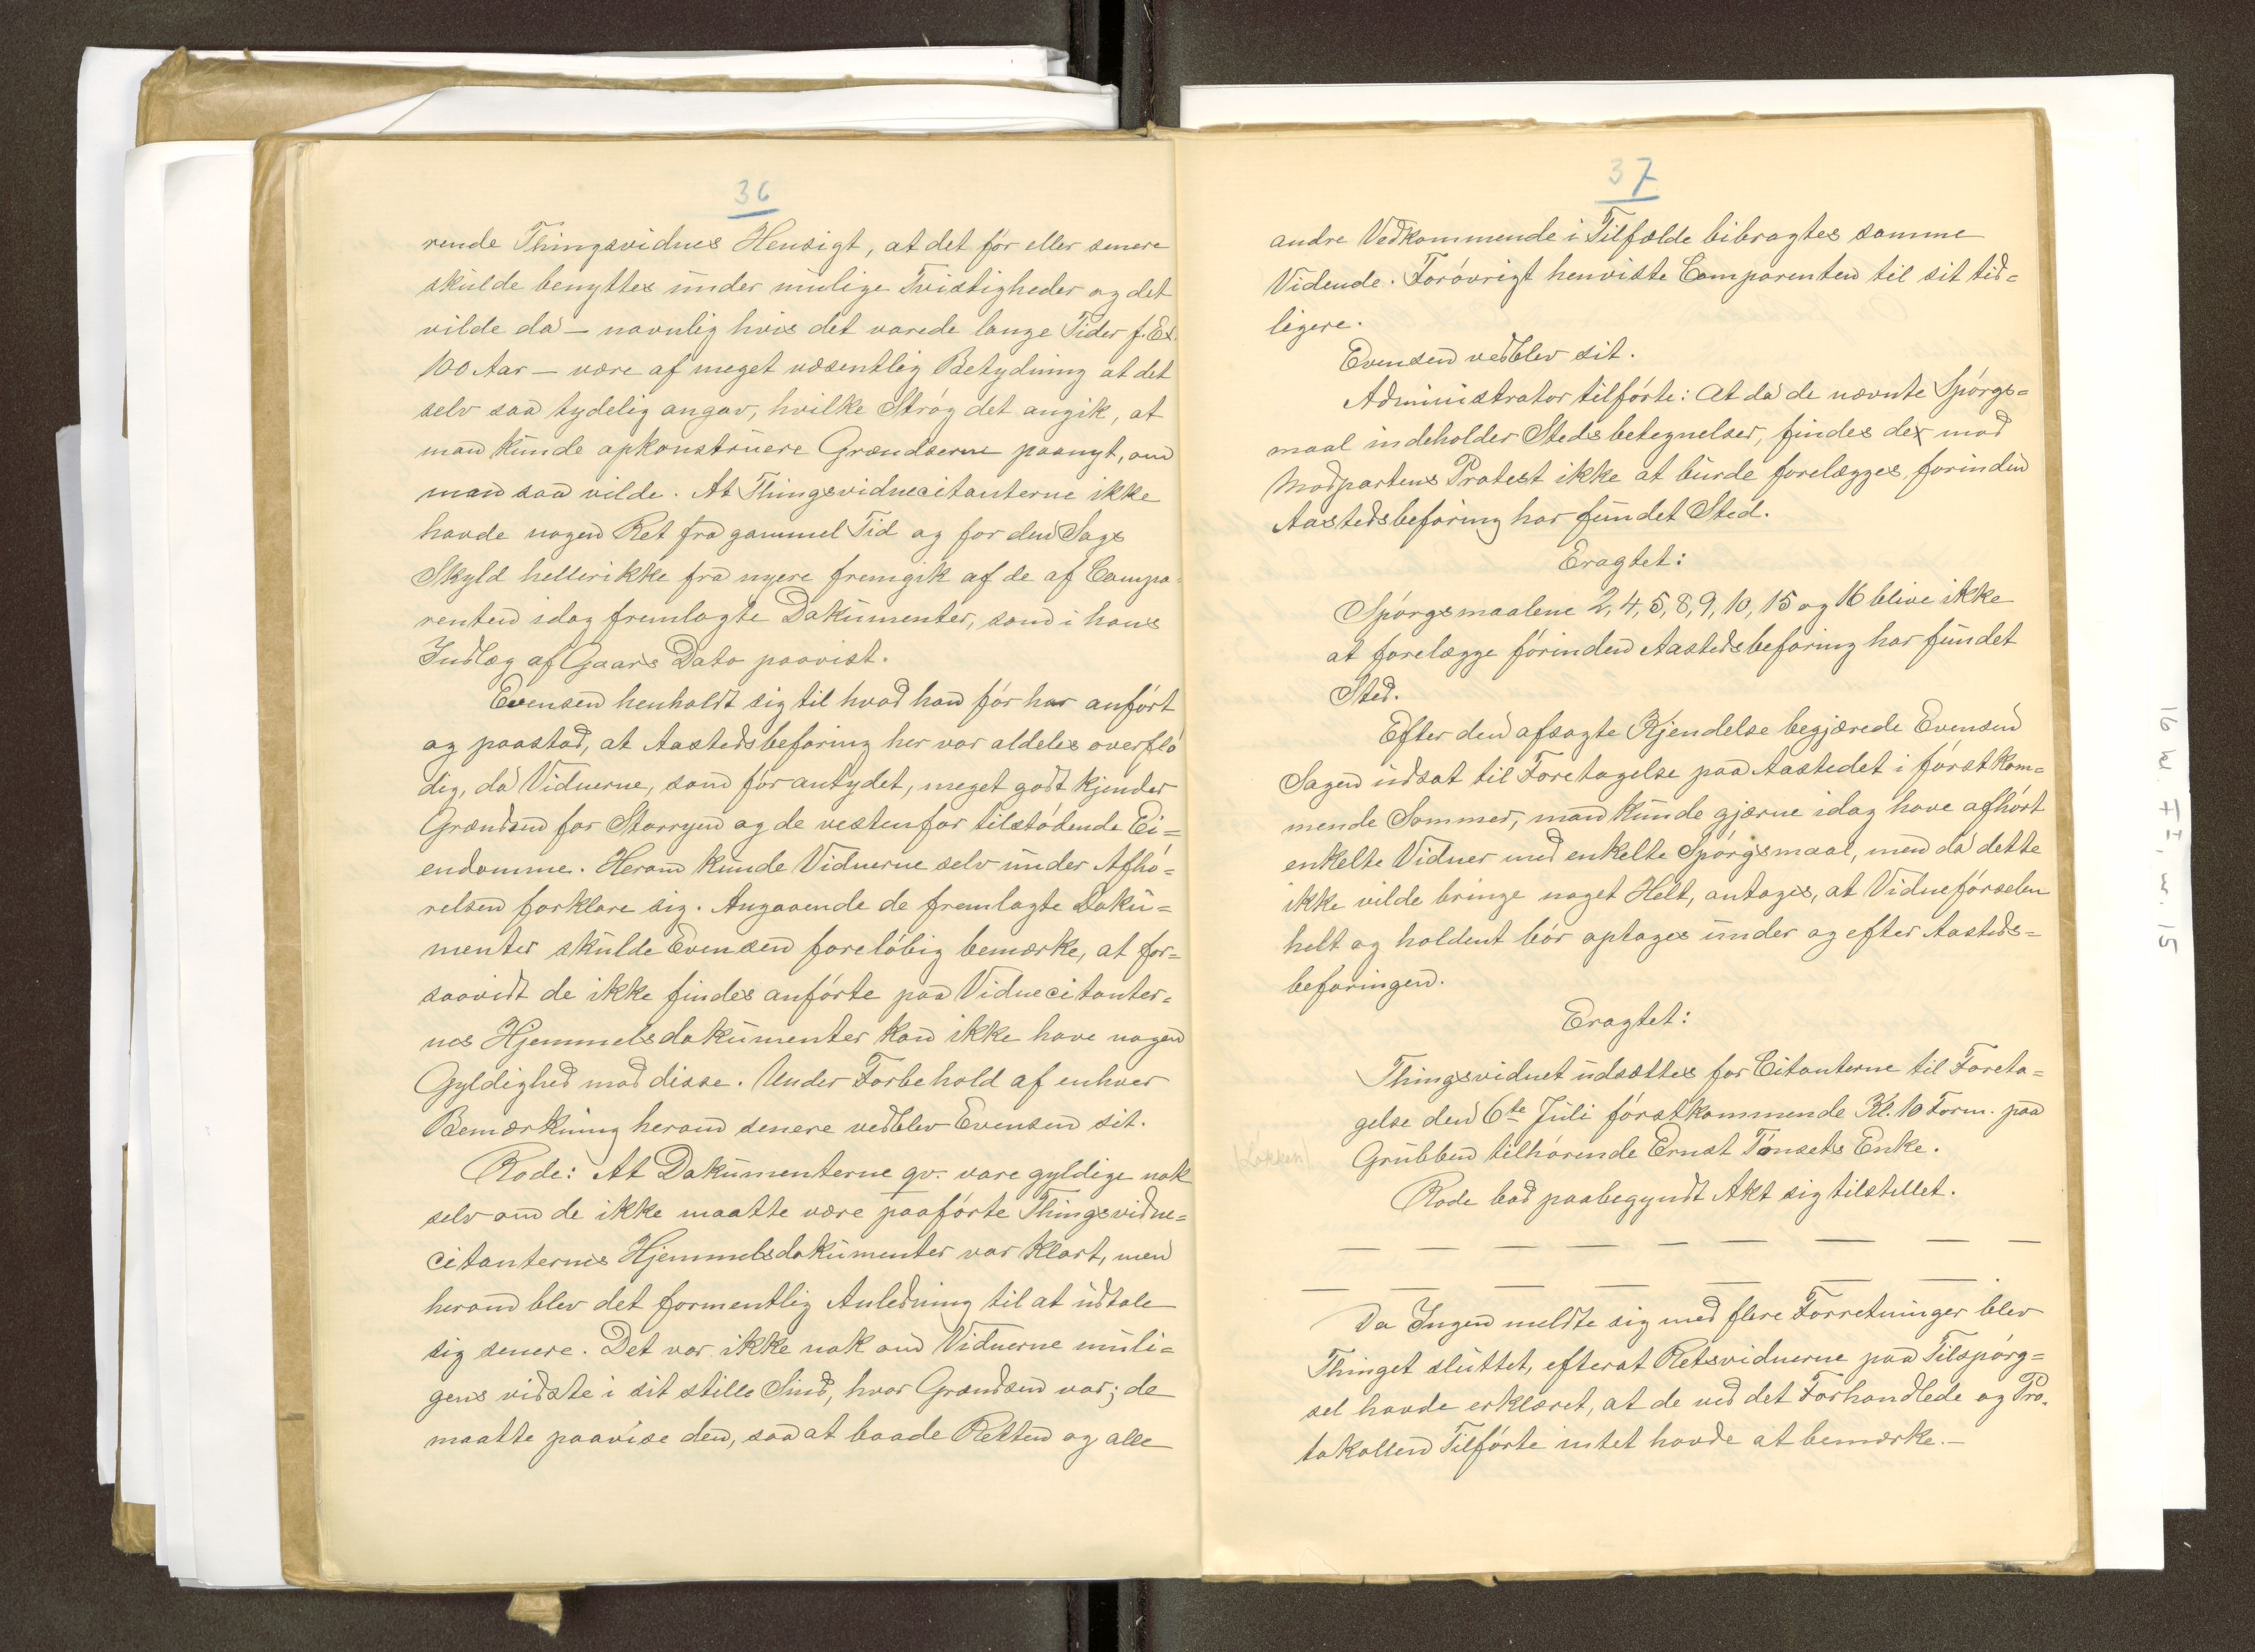 36
rende Thingsvidnes Hensigt, at det før eller senere
skulde benyttes under mulige Tvistigheder og det
vilde da — navnlig hvis det varede lange Tider f. Ex.
100 Aar — være af meget væsentlig Betydning at det
selv saa tydelig angav, hvilke Strøg det angik, at
man kunde opkonstruere Grændserne paanyt, om
man saa vilde. At Thingsvidnecitanterne ikke
havde nogen Ret fra gammel Tid og for den Sags
Skyld hellerikke fra nyere fremgik af de af Compa-
renten idag fremlagte Dokumenter, som i hans
Indlæg af Gaars Dato paavist.
Evensen henholdt sig til hvad han før har anført
og paastod, at Aastedsbefaring her var aldeles overflø
dig, da Vidnerne, som før antydet, meget godt kjender
Grændsen for Storryen og de vestenfor tilstødende Ei=
endomme. Herom kunde Vidnerne selv under Afhø=
relsen forklare sig. Angaaende de fremlagte Doku=
menter skulde Evensen foreløbig bemærke, at for=
saavidt de ikke findes anførte paa Vidnecitanter=
nes Hjemmelsdokumenter kan ikke have nogen
Gyldighed mod disse. Under Forbehold af enhver
Bemærkning herom senere vedblev Evensen sit.
Rode: At Dokumenterne qv. vare gyldige nok
selv om de ikke maatte være paaførte Thingsvidne=
citanternes Hjemmelsdokumenter var klart, men
herom blev det formentlig Anledning til at udtale
sig senere. Det var ikke nok om Vidnerne muli=
gens vidste i sit stille Sind, hvor Grændsen var; de
maatte paavise den, saa at baade Retten og alle
37
andre Vedkommende i Tilfælde bibragtes samme
Vidende. Forøvrigt henviste Comparenten til sit tid=
ligere.
Evensen vedblev sit.
Administrator tilførte: At da de nævnte Spørgs=
maal indeholder Stedsbetegnelser, findes de mod
Modpartens Protest ikke at burde forelægges, forinden
Aastedsbefaring har fundet Sted.
Eragtet:
Spørgsmaalene 2, 4, 5, 8, 9, 10, 15 og 16 blive ikke
at forelægge førinden Aastedsbefaring har fundet
Sted.
Efter den afsagte Kjendelse begjærede Evensen
Sagen udsat til Foretagelse paa Aastedet i førstkom=
mende Sommer, man kunde gjærne idag have afhørt
enkelte Vidner med enkelte Spørgsmaal, men da dette
ikke vilde bringe noget Helt, antages, at Vidneførselen
helt og holdent bør optages under og efter Aasteds=
befaringen.
Eragtet:
Thingsvidnet udsættes for Citanterne til Foreta=
gelse den 6te Juli førstkommende Kl. 10 Form. paa
(Løkken)
Grubben tilhørende Ernst Tønsets Enke.
Rode bad paabegyndt Akt sig tilstillet.
— — — — — — — —
— — — — — — —
Da Ingen meldte sig med flere Forretninger blev
Thinget sluttet, efterat Retsvidnerne paa Tilspørg=
sel havde erklæret, at de ved det Forhandlede og Pro.
tokollen Tilførte intet havde at bemærke.—